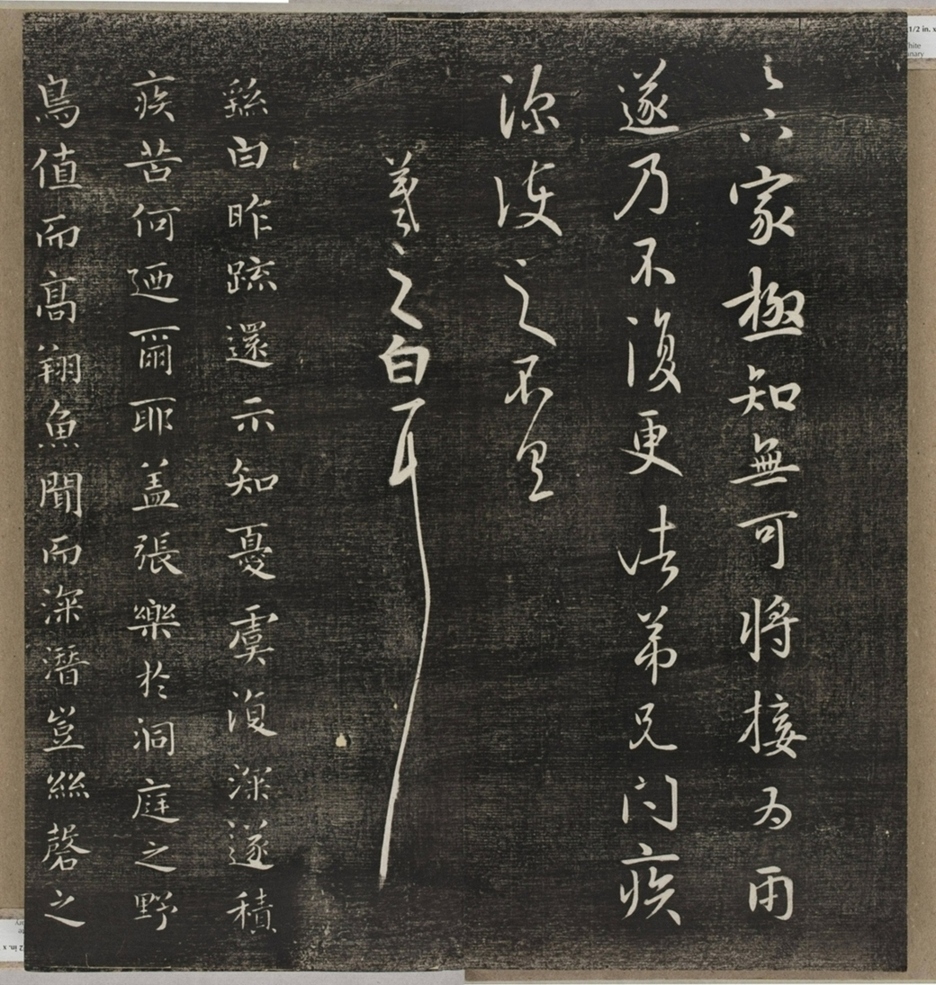 六家極知無可將接為雨
遂乃不復更弟兄問疾
深護之不具
羲之白耳
繇白昨疏還示知憂虞復深遂積
疾苦何迺爾耶蓋張樂於洞庭之野
鳥值而高翔魚聞而深潛豈絲磬之